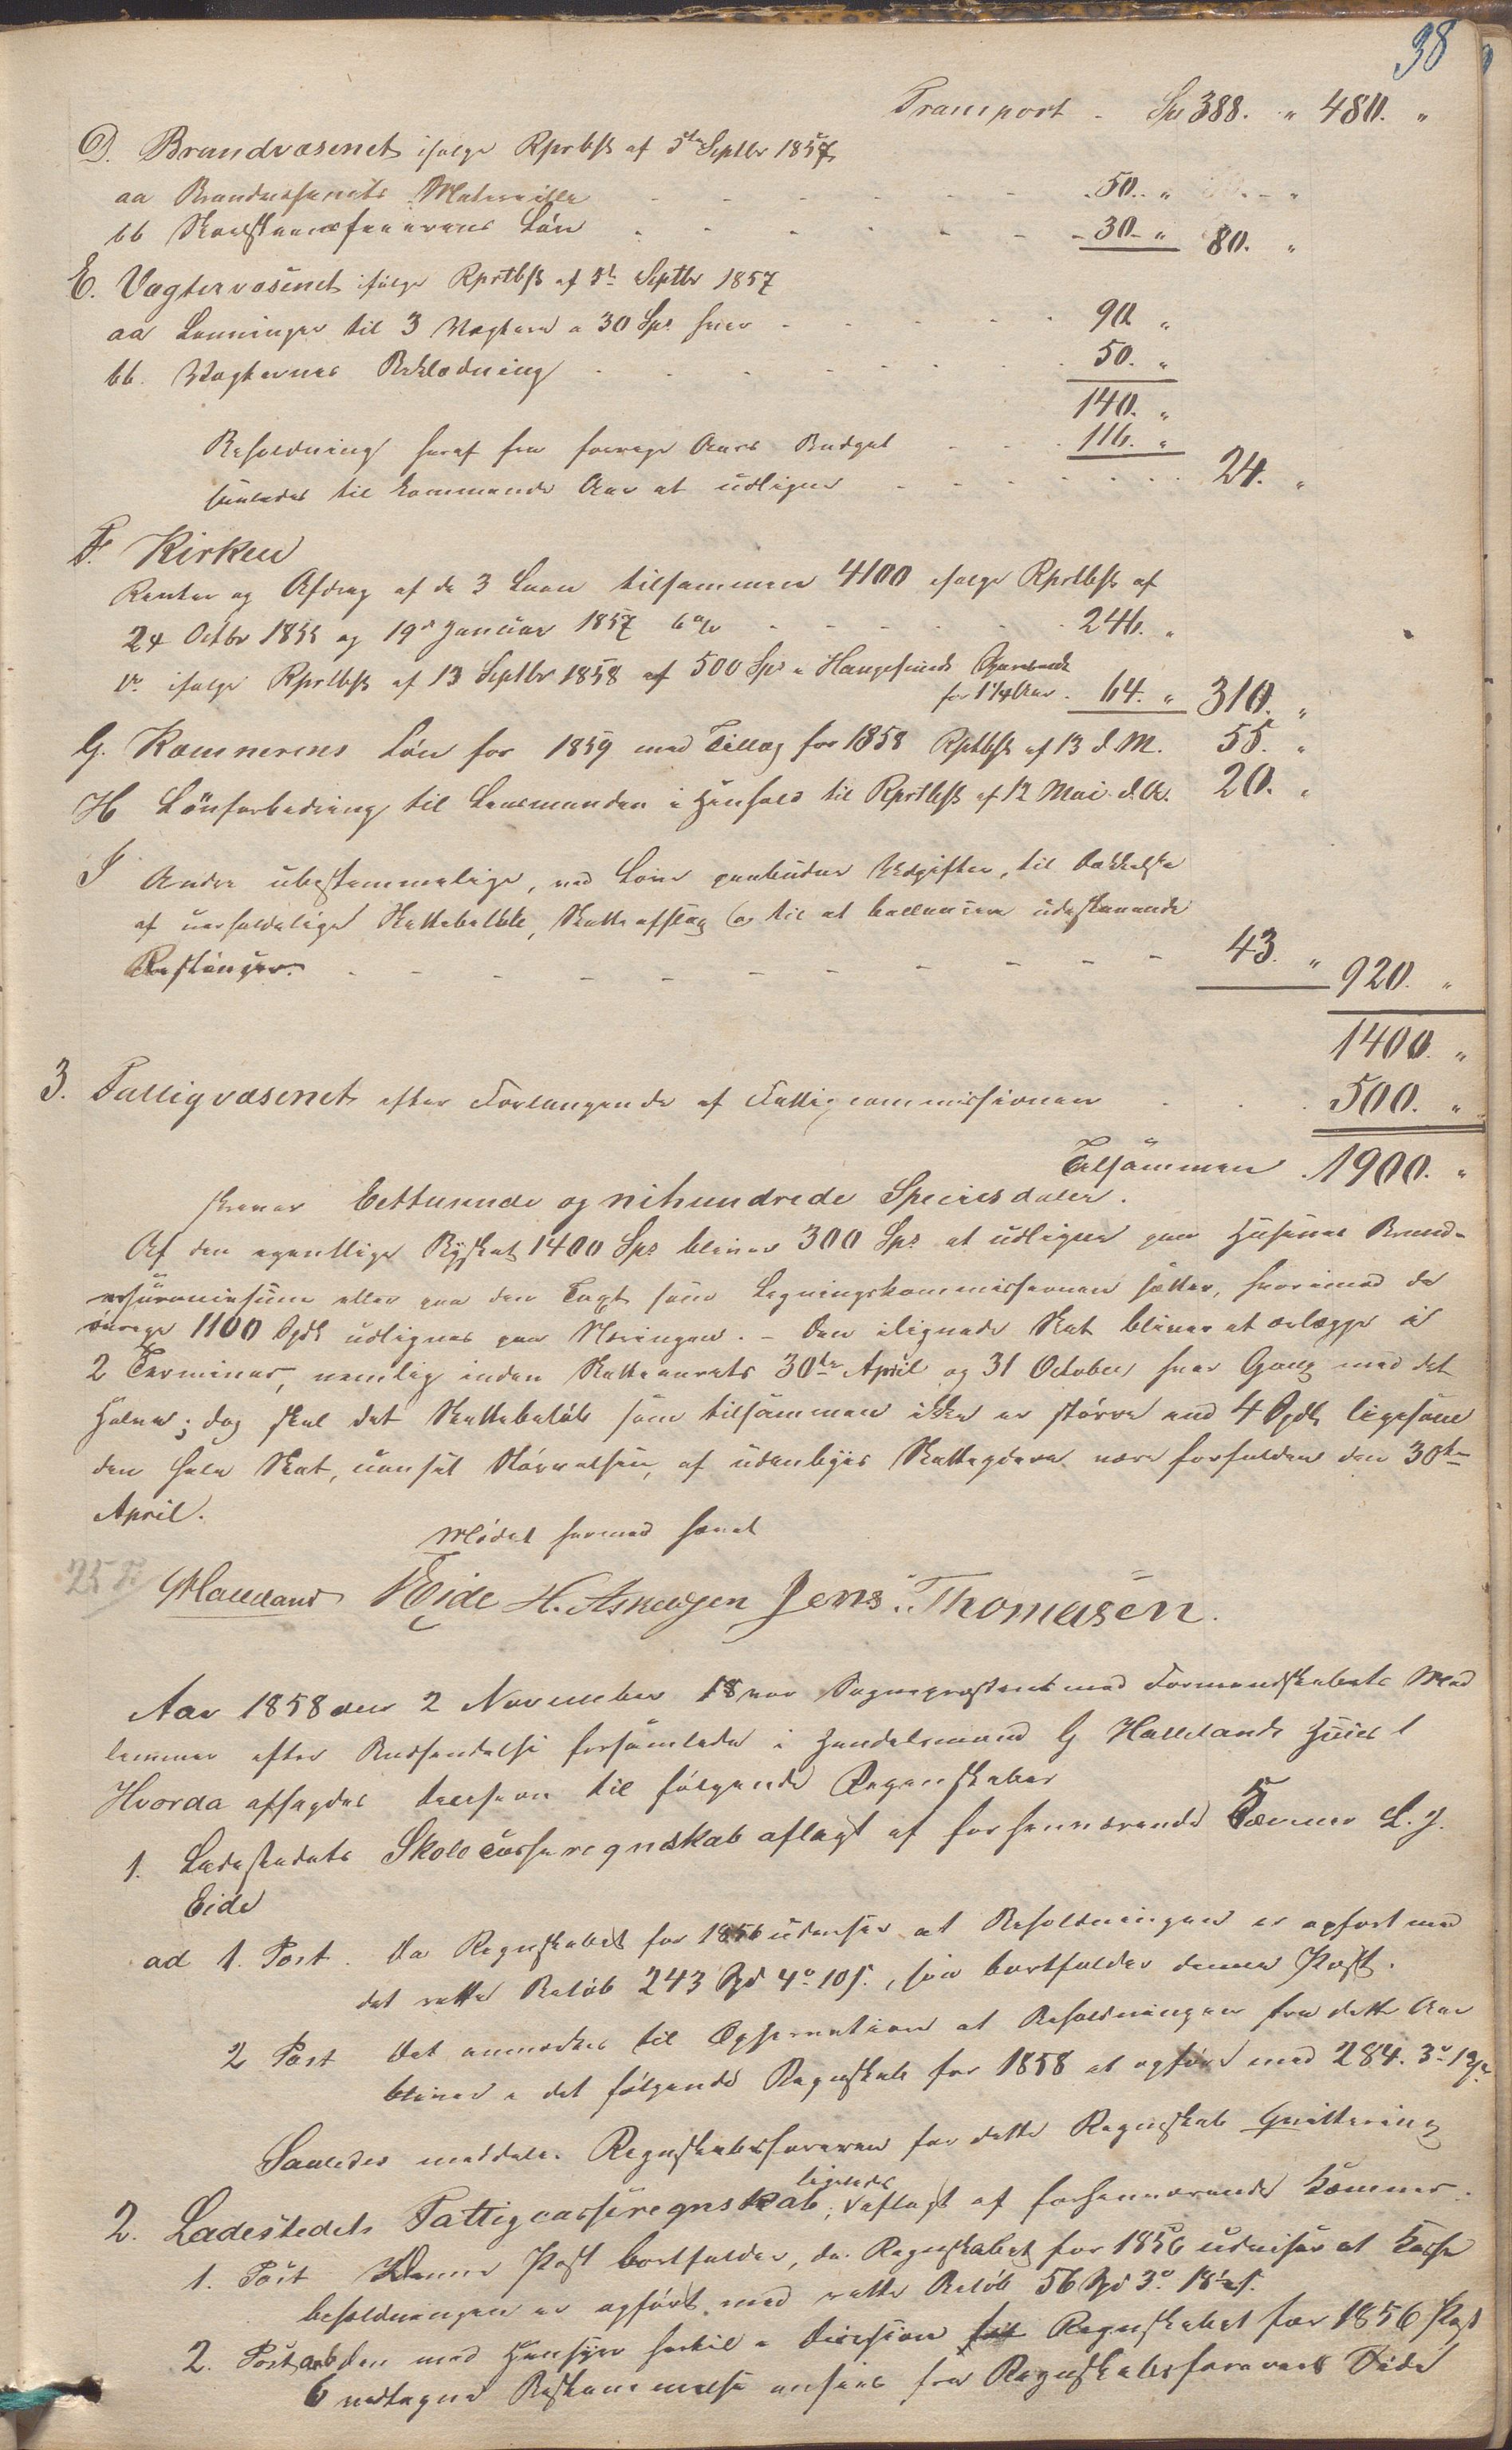 38
Transport - Sp 388. " 480. "
D. Brandvæsenet ifølge Rprbsl. af 5te Septbr 1857
aa Brandvæsenets Materielle - - - - - - 50. " "
bb Skorstensfeierens Løn - - - - - - 30 - " 80. "
E. Vægtervæsenet ifølge Rprtbsl af 5te Septbr 1857
aa Lønninger til 3 Vægtere a 30 Spd hver - - - - - 90 "
bb. Vægternes Beklædning - - - - - - 50. "
140. "
Beholdning heraf fra forrige Aars Budget - - - 116. "
saaledes til kommende Aar at udligne - - - - - - 24. "
F. Kirken
Renter og Afdrag af de 3 Laan tilsammen 4100 ifølge Rprtbsl af
24 Octbr 1855 og 19de Januar 1857 6 % - - - - - 246. "
do ifølge Rprtbsl af 13 Septbr 1858 af 500 Spd i Haugesunds Sparebank
for 1¼ Aar. 64. " 310. "
G. Kæmnerens Løn for 1859 med Tillæg for 1858 Rptbsl af 13 d. M. 55. "
H Lønforbedring til Lensmanden i Henhold til Rprtbsl af 12 Mai d. A. 20. "
I Andre ubestemmelige, ved Love paabudne Udgifter, til Dækkelse
af uerholdelige Skattebeløb, Skatteafslag & til at ballancere udestaaende
Restancer. - - - - - - - - - 43. " 920. "
1400. "
3. Fattigvæsenet efter Forlangende af Fattigcommissionen . . . 500. "
Tilsammen . 1900. "
skriver Eettusende og nihundrede Speciesdaler.
Af den egentlige Byskat 1400 Spd bliver 300 Spd at udligne paa Husenes Brand-
assurancesum eller paa den Taxt som Ligningskommissionen sætter, hvorimod de
øvrige 1100 Spdl udlignes paa Næringen. - Den ilignede Skat bliver at erlægge i
2 Terminer, nemlig inden Skatteaarets 30te April og 31 October hver Gang med det
Halve; dog skal det Skattebeløb som tilsammen ikke er større end 4 Spdl, ligesom
den hele Skat, uanset Størrelsen, af udenbyes Skatteydere være forfalden den 30te
April.
Mødet hermed hævet
G Halleland Eide H. Askeløen Jens. Thomasen.
Aar 1858 den 2 November var Sognepræsten med Formandskabets Med
lemmer efter Budsendelse forsamlede i Handelsmand G Hallelands Huus
Hvorda afsagdes Decision til følgende Regenskaber
1. Ladestedets Skolecasseregnskab aflagt af forhenværende Kæmner L. J.
Eide
ad 1. Post. Da Regnskabet for 1856 udviser at Beholdningen er opført med
det rette Beløb 243 Spd 4o 10 s., saa bortfalder denne Post.
2 Post Det anmærkes til Observation at Beholdningen fra dette Aar
bliver i det følgende Regnskab for 1858 at opføre med 284. 3o 19
Saaledes meddeles Regnskabsføreren for dette Regnskab Quittering
2. Ladestedets Fattigcasseregnskab, ligeledes aflagt af forhenværende Kæmner.
1. Post Denne Post bortfalder, da Regnskabet for 1856 udviser at Kasse
beholdningen er opført med rette Beløb 56 Spd 3o 18½ s.
2. Post den med Hensyn hertil i Decision Regnskabet for 1856 Post
6 vedtagne Bestemmelse ansees fra Regnskabsførerens Side